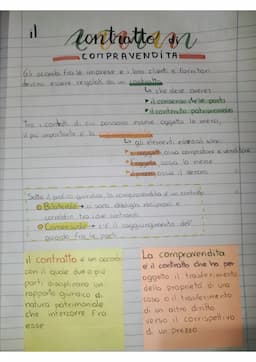 il
contratto di
COMPRAVENDITA
Gli accordi fra le imprese e i loro clienti e fornitori
devono essere regolati da un contratto
che deve avere:
il consenso delle parti
il contenuto patrimoniale
Tra i contratti di cui possono essere oggetto le merci,
il più importante è la
gli elementi essenziali sono:
i soggetti ossia compratore e venditore
l'oggetto ossia la merce
il prezzo ossia il denaro
Sotto il profilo giuridico la compravendita è un contratto
Bilaterale → ci sono obblighi reciproci e
correlativi tra i due contraenti
Consensuale → c'è il raggiungimento dell'
accordo fra le parti
il contratto è un accordo
con il quale due o più
parti disciplinano un
rapporto giuridico di
natura patrimoniale
che intercorre fra
esse
La compravendita
è il contratto che ha per
oggetto il trasferimento
della proprietà di una
cosa o il trasferimento
di un altro diritto
verso il corrispettivo
di un prezzo